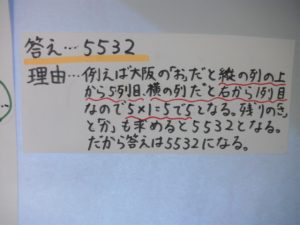 答え…5532
理由…例えば大阪の「お」だと縦の列の上
から5列目、横の列だと右から1列目
なので5×1=5で5となる。残りの「さ」
と「か」も求めると5532となる。
だから答えは5532になる。